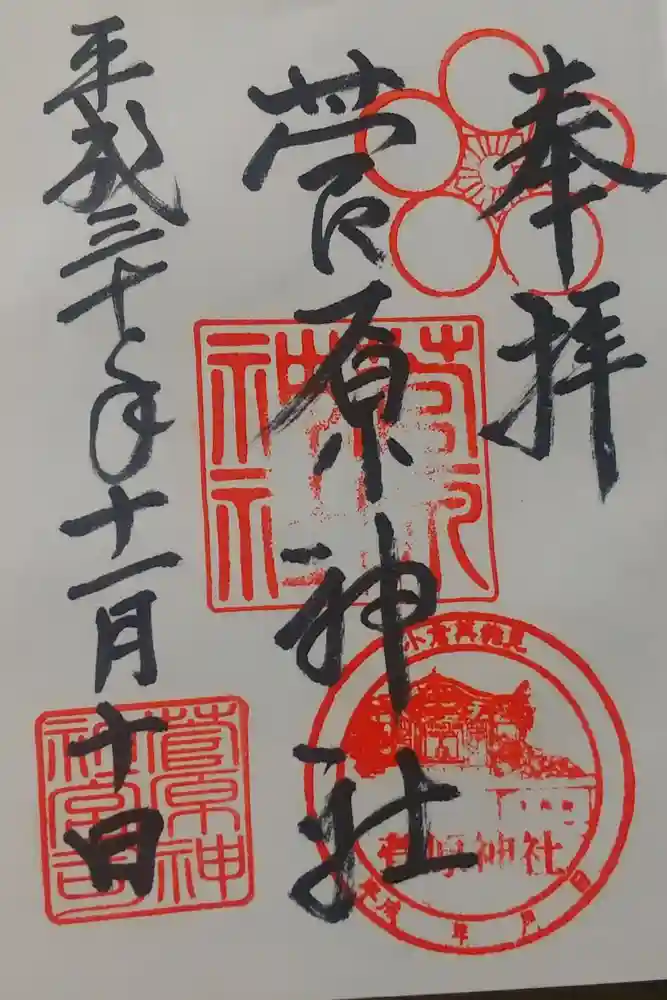 奉拝
菅原神社
平成三十年十一月十日
菅原神社
菅原神社
菅原神社宮司